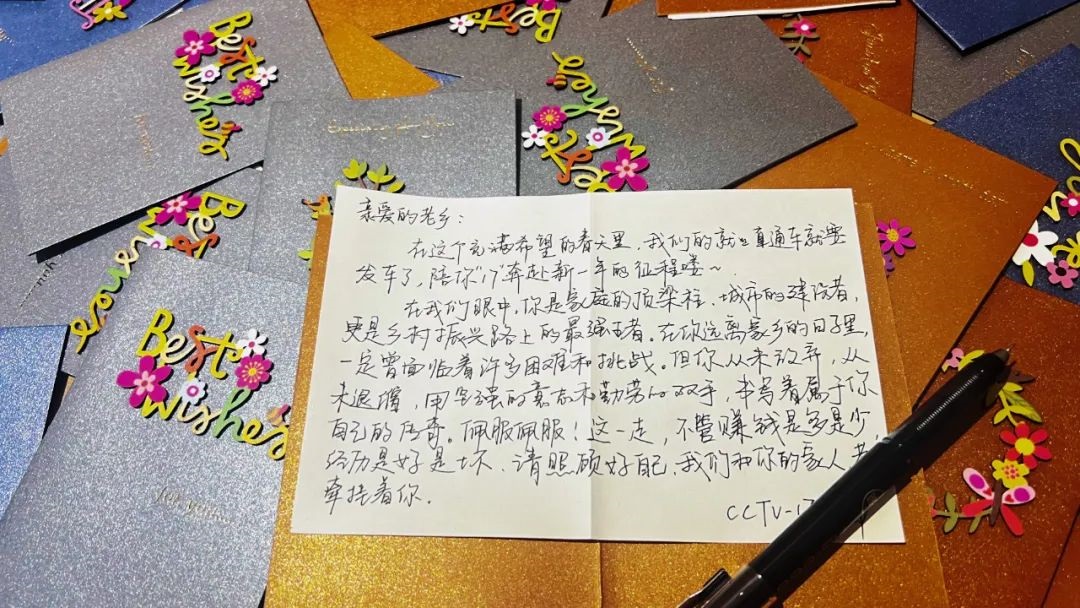 Best
wishes
Best
wishes
Best
wishes
Best
wishes
for you...
亲爱的老乡：
在这个充满希望的春天里，我们的就业直通车就要
发车了，陪你"17"奔赴新一年的征程喽~
在我们眼中，你是家庭的顶梁柱、城市的建设者，
更是乡村振兴路上的最强王者。在你远离家乡的日子里，
一定曾面临着许多困难和挑战。但你从未放弃，从
未退缩，用坚强的意志和勤劳的双手，书写着属于你
自己的传奇。佩服佩服！这一走，不管赚钱是多是少，
经历是好是坏，请照顾好自己，我们和你的家人
牵挂着你。
CCTV-17